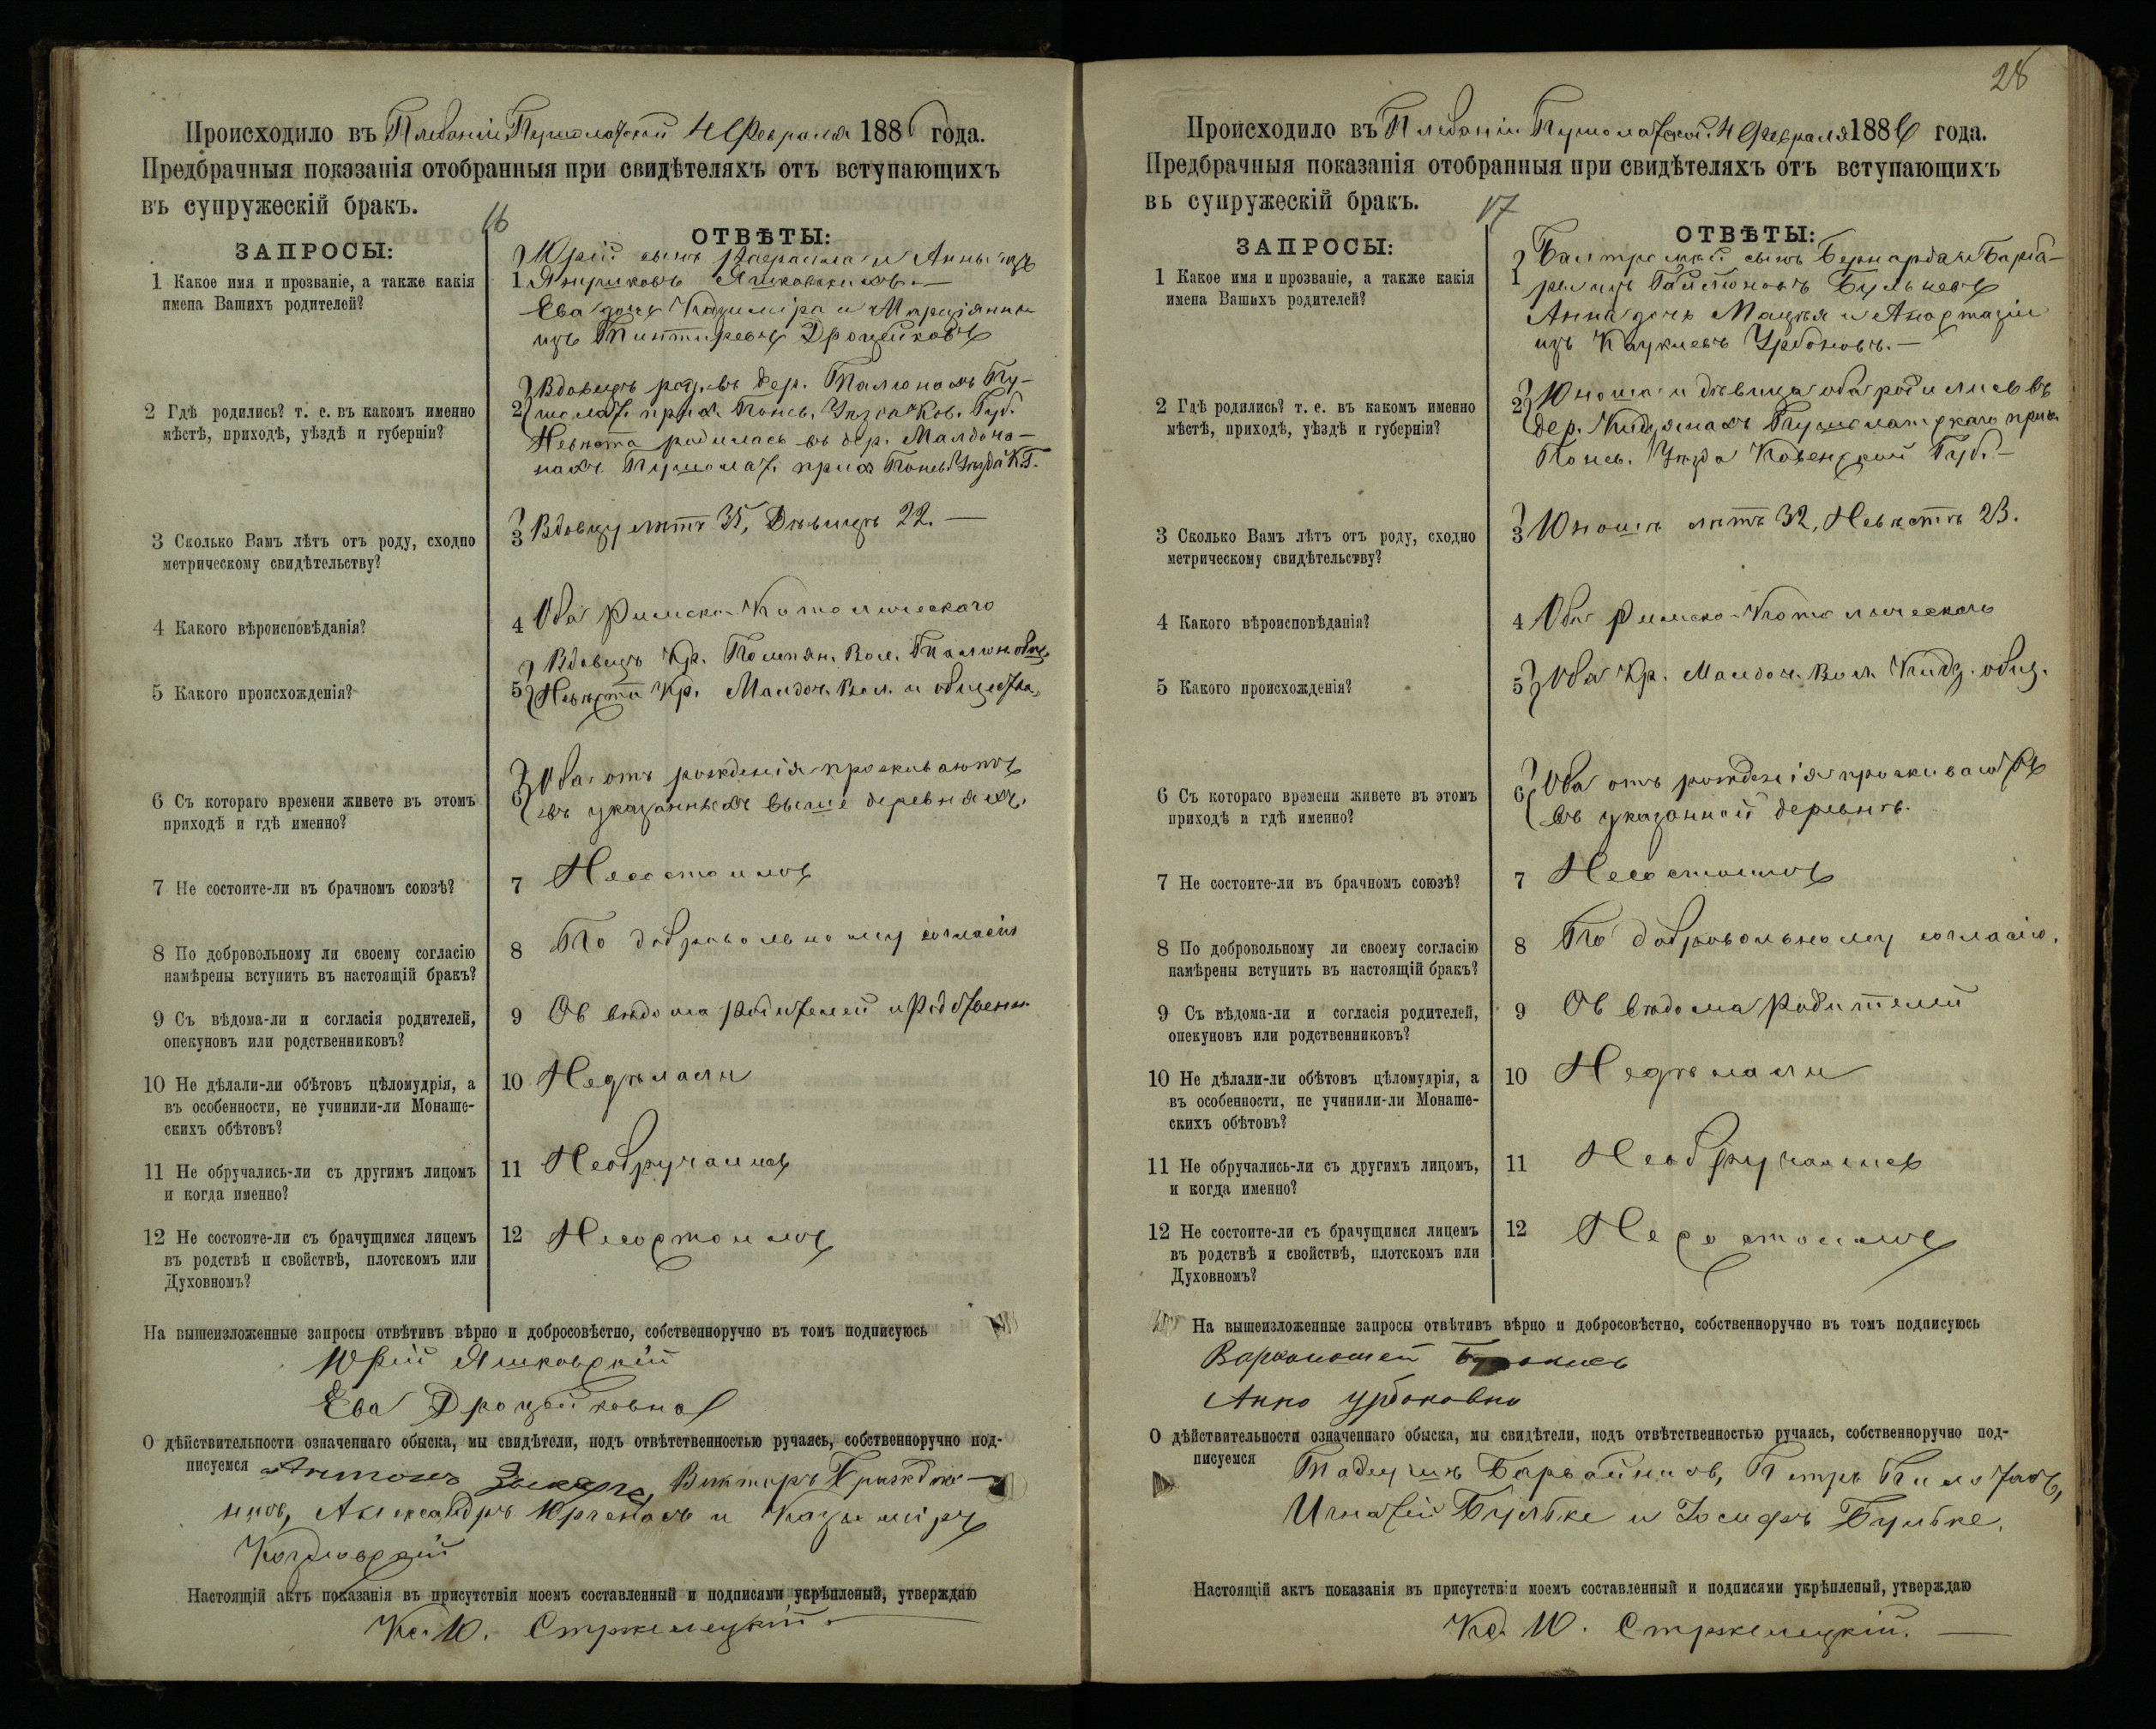 Происходило въ Плебаніи Пушолатской 4 Февраля 1886 года.
Предбрачныя показанія отобранныя при свидѣтеляхъ отъ вступающихъ
въ супружескій бракъ.
16
ЗАПРОСЫ:
ОТВѢТЫ:
1 Какое имя и прозваніе, а также какія
имена Вашихъ родителей?
1 Юрій сынъ и Анны изъ
Яшковскихъ.—
Ева дочь Казиміра и Марціянны
изъ
2 Гдѣ родились? т. е. въ какомъ именно
мѣстѣ, приходѣ, уѣздѣ и губерніи?
2 Вдовецъ род. въ дер. Талюнахъ Пу-
шолат. прих. Понев. Уѣзда Ков. Губ.
Невѣста родилась въ дер.
Пушолат. прих. Понев. Уѣзда К. Г.
3 Сколько Вамъ лѣтъ отъ роду, сходно
метрическому свидѣтельству?
3 Вдовцу лѣтъ 35, Дѣвицѣ 22. —
4 Какого вѣроисповѣданія?
4 Оба Римско-Католическаго
5 Какого происхожденія?
5 Вдовецъ Кр. Помпян. Вол.
Невѣста Кр. Вол. и общества.
6 Съ котораго времени живете въ этомъ
приходѣ и гдѣ именно?
6 Оба отъ рожденія проживаютъ
въ указанныхъ выше деревняхъ.
7 Не состоите-ли въ брачномъ союзѣ?
7 Несостоимъ
8 По добровольному ли своему согласію
намѣрены вступить въ настоящій бракъ?
8 По добровольному согласію
9 Съ вѣдома-ли и согласія родителей,
опекуновъ или родственниковъ?
9 Съ вѣдома родителей и
10 Не дѣлали-ли обѣтовъ цѣломудрія, а
въ особенности, не учинили-ли Монаше-
скихъ обѣтовъ?
10 Недѣлали
11 Не обручались-ли съ другимъ лицомъ
и когда именно?
11 Необручались
12 Не состоите-ли съ брачущимся лицемъ
въ родствѣ и свойствѣ, плотскомъ или
Духовномъ?
12 Несостоимъ
На вышеизложенные запросы отвѣтивъ вѣрно и добросовѣстно, собственноручно въ томъ подписуюсь
Юрій Яшковскій
Ева
О дѣйствительности означеннаго обыска, мы свидѣтели, подъ отвѣтственностью ручаясь, собственноручно под-
писуемся Антонъ Викторъ
Александръ и Казиміръ
Настоящій актъ показанія въ присутствіи моемъ составленный и подписями укрѣпленый, утверждаю
Кс. Ю. Стржелецкій.
28
Происходило въ Плебаніи Пушолатской 4 Февраля 1886 года.
Предбрачныя показанія отобранныя при свидѣтеляхъ отъ вступающихъ
въ супружескій бракъ.
17
ЗАПРОСЫ:
ОТВѢТЫ:
1 Какое имя и прозваніе, а также какія
имена Вашихъ родителей?
1 сынъ Бернарда и Барба-
ры изъ
Анна дочь и Анастазіи
изъ Урбоновъ.—
2 Гдѣ родились? т. е. въ какомъ именно
мѣстѣ, приходѣ, уѣздѣ и губерніи?
2 Юноша и дѣвица оба родились въ
дер. Пушолатскаго прих.
Понев. Уѣзда Ковенской Губ.—
3 Сколько Вамъ лѣтъ отъ роду, сходно
метрическому свидѣтельству?
3 Юношѣ лѣтъ 32, Невѣстѣ 23.
4 Какого вѣроисповѣданія?
4 Оба Римско-Католическаго
5 Какого происхожденія?
5 Оба Кр. Вол. общ.
6 Съ котораго времени живете въ этомъ
приходѣ и гдѣ именно?
6 Оба отъ рожденія проживаютъ
въ указанной деревнѣ.
7 Не состоите-ли въ брачномъ союзѣ?
7 Несостоимъ
8 По добровольному ли своему согласію
намѣрены вступить въ настоящій бракъ?
8 По добровольному согласію.
9 Съ вѣдома-ли и согласія родителей,
опекуновъ или родственниковъ?
9 Съ вѣдома Родителей
10 Не дѣлали-ли обѣтовъ цѣломудрія, а
въ особенности, не учинили-ли Монаше-
скихъ обѣтовъ?
10 Недѣлали
11 Не обручались-ли съ другимъ лицомъ,
и когда именно?
11 Необручались
12 Не состоите-ли съ брачущимся лицемъ
въ родствѣ и свойствѣ, плотскомъ или
Духовномъ?
12 Несостоимъ
На вышеизложенные запросы отвѣтивъ вѣрно и добросовѣстно, собственноручно въ томъ подписуюсь
Анна Урбоновна
О дѣйствительности означеннаго обыска, мы свидѣтели, подъ отвѣтственностью ручаясь, собственноручно под-
писуемся Тадеушъ Петръ
Игнатій Бульбке и Іосифъ Бульбке.
Настоящій актъ показанія въ присутствіи моемъ составленный и подписями укрѣпленый, утверждаю
Кс. Ю. Стржелецкій. —